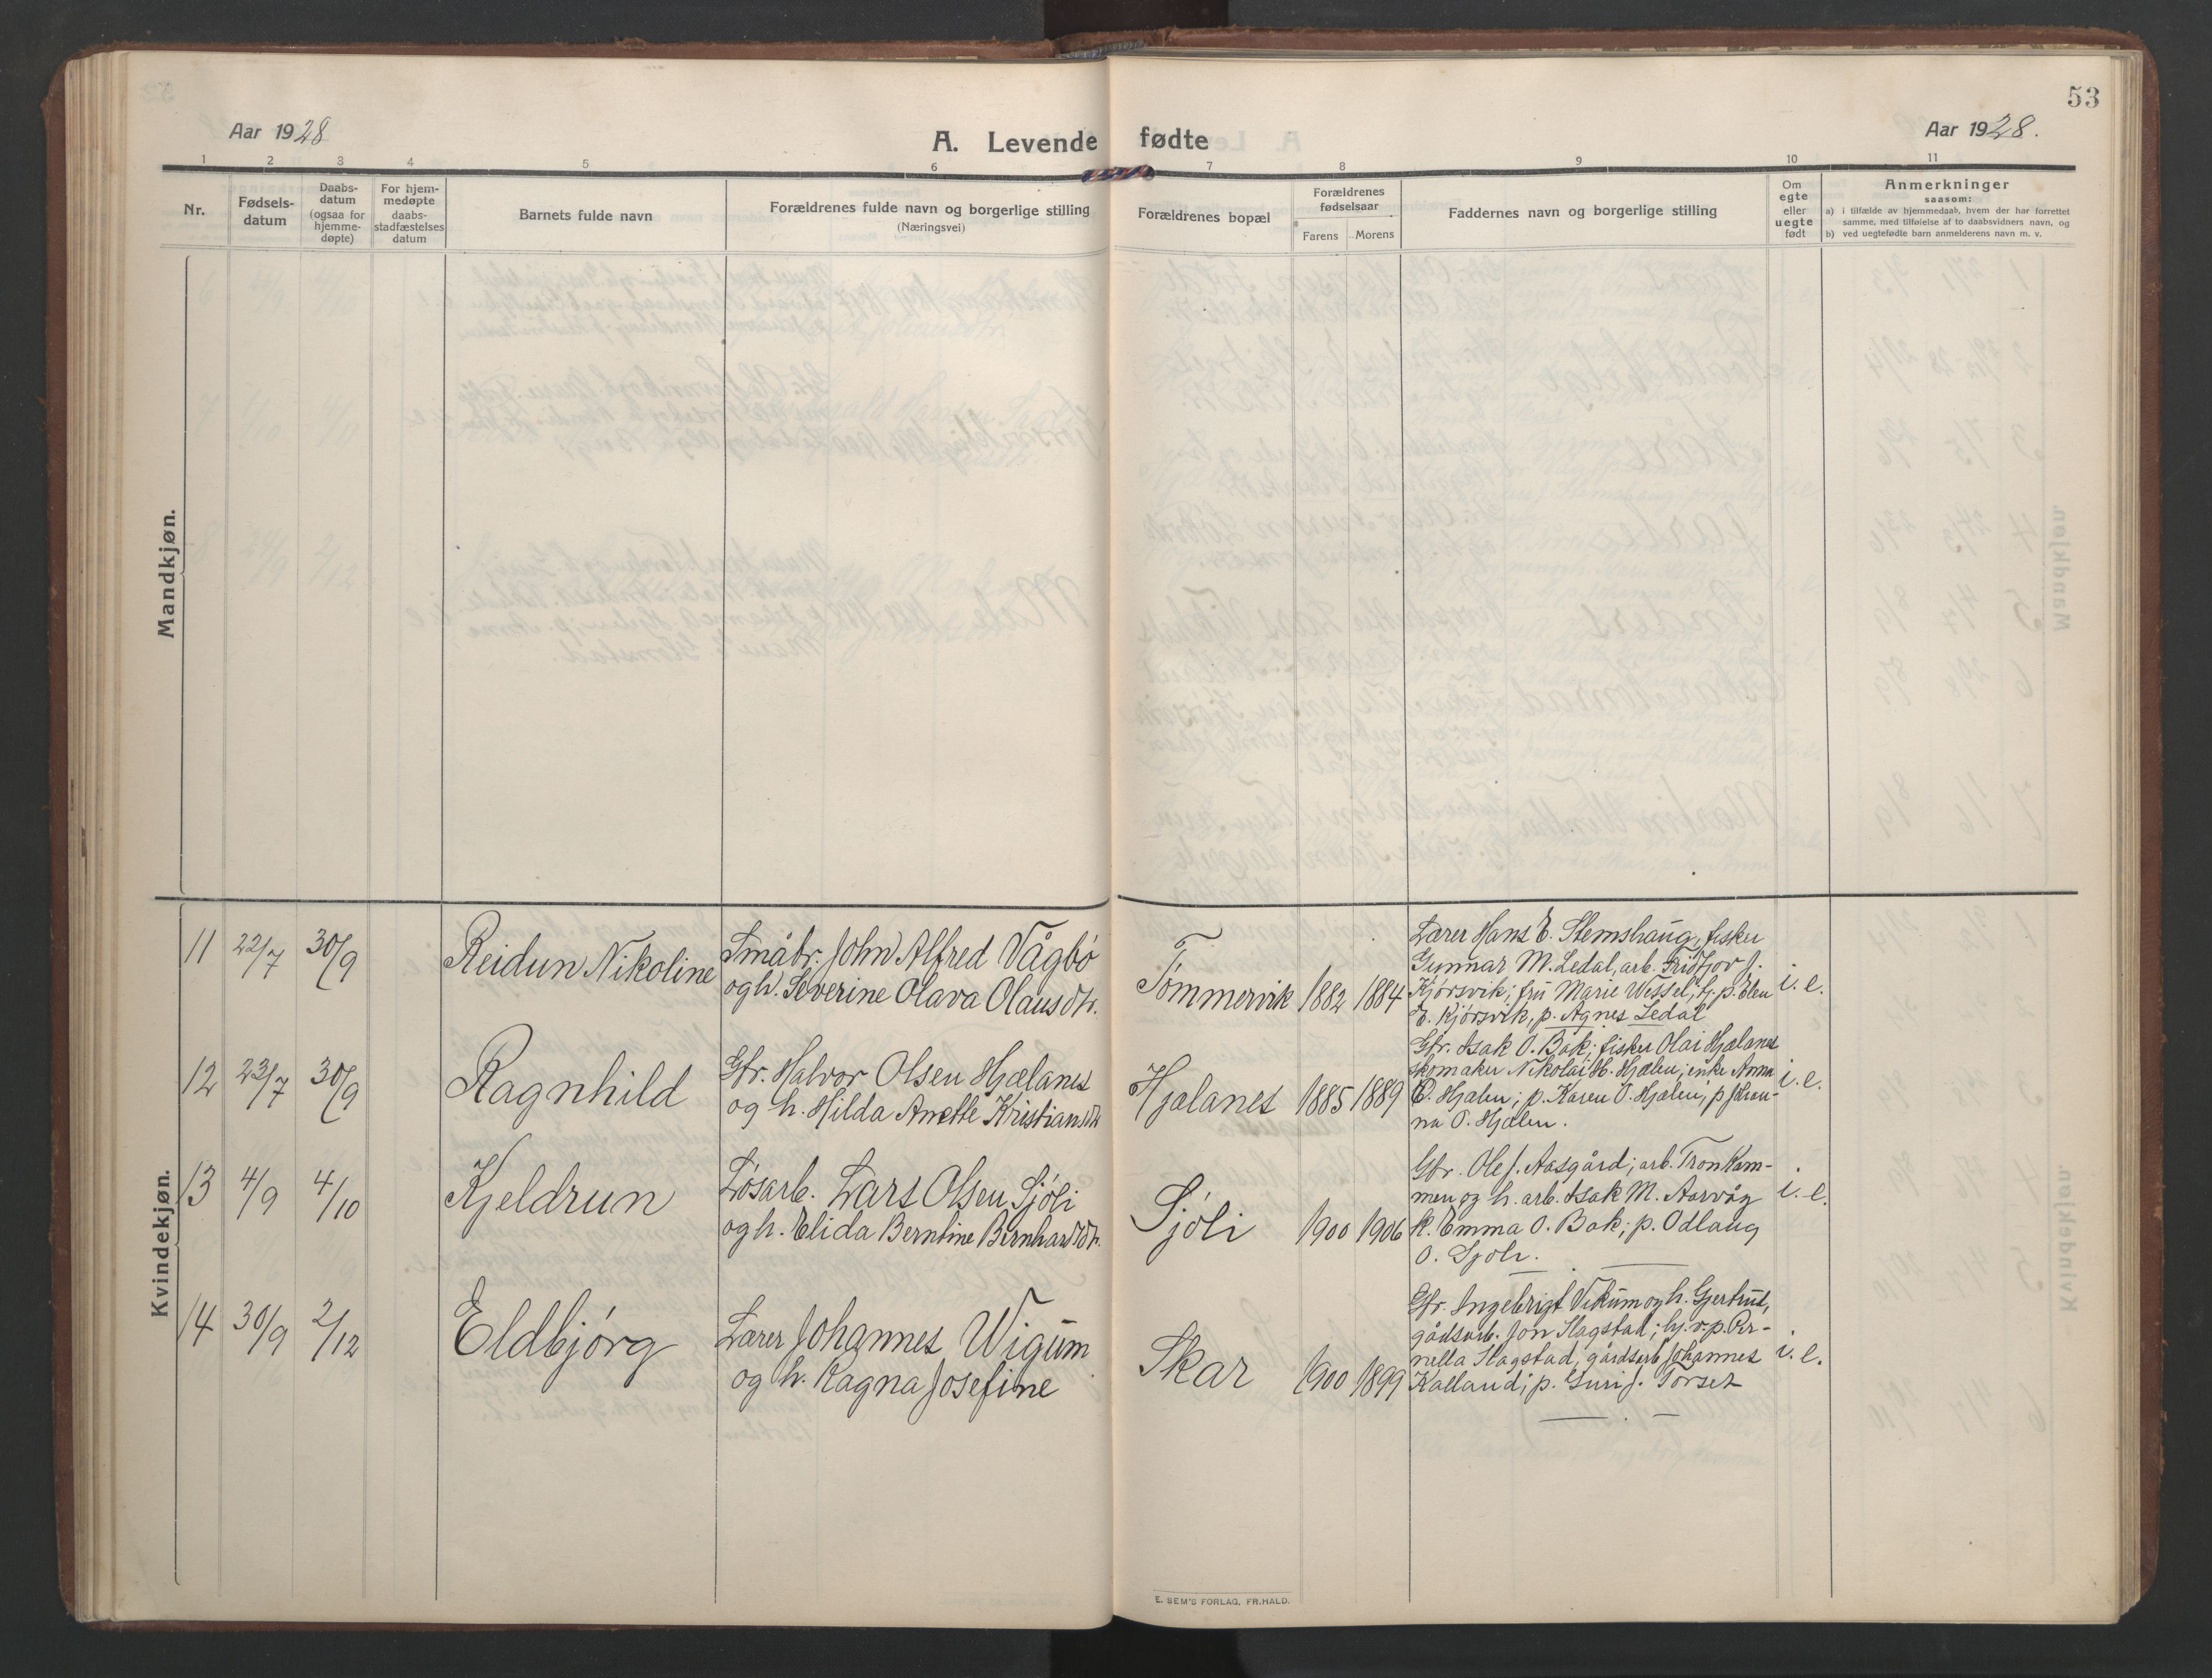 53
Aar 1928
A. Levende fødte
Aar 1928.
1 2 3 4 5 6 7 8 9 10 11
Nr.
Fødsels-
datum
Daabs-
datum
(ogsaa for
hjemme-
døpte)
For hjem-
medøpte
daabs-
stadfæstelses
datum
Barnets fulde navn
Forældrenes fulde navn og borgerlige stilling
(Næringsvei)
Forældrenes bopæl
Forældrenes
fødselsaar
Farens Morens
Faddernes navn og borgerlige stilling
Om
egte
eller
uegte
født
Anmerkninger
saasom:
a) i tilfælde av hjemmedaab, hvem der har forrettet
samme, med tilføielse af to daabsvidners navn, og
b) ved uegtefødte barn anmelderens navn m. v.
Mandkjøn.
Kvindekjøn.
11 22/7 30/9 Reidun Nikoline
Småbr. John Alfred Vågbö
og h. Severine Olava Olausdtr.
Tömmervik 1882 1884
Lærer Hans E. Stemshaug, fisker
Gunnar M. Ledal, arb. Fridtjov J.
Kjörsvik; fru Marie Wessel; hj. p. Elen
E. Kjörsvik, p. Agnes Ledal
i. e.
12 23/7 30/9 Ragnhild
Gbr. Halvor Olsen Hjælanes
og h. Hilda Anette Kristiansdtr
Hjælanes 1885 1889
Gbr. Isak O. Bak; fisker Olai Hjælanes
skomaker Nikolai H. Hjælen; enke Anna
O. Hjælen; p. Karen O. Hjælen; p Johan-
na O. Hjælen.
i. e.
13 4/9 4/10 Kjeldrun
Løsarb. Lars Olsen Sjöli
og h. Elida Berntine Bernhardsdtr.
Sjöli 1900 1906
Gbr. Ole J. Aasgård; arb. Tron Ram-
men og h. arb. Isak M. Aarvåg
k. Emma O. Bak; p. Odlaug
O. Sjöli.
i. e.
14 30/9 2/12 Eldbjörg
Lærer Johannes Wigum
og h. Ragna Josefine
Skar 1900 1899
Gbr. Ingebrigt Vikum og h. Gjertrud,
gårdsarb. Jon Slagstad; hj. v. p. Per-
nella Slagstad, gårdsarb Johannes
Kalland; p. Guri J. Torset
i. e.
E. SEM'S FORLAG, FR.HALD.